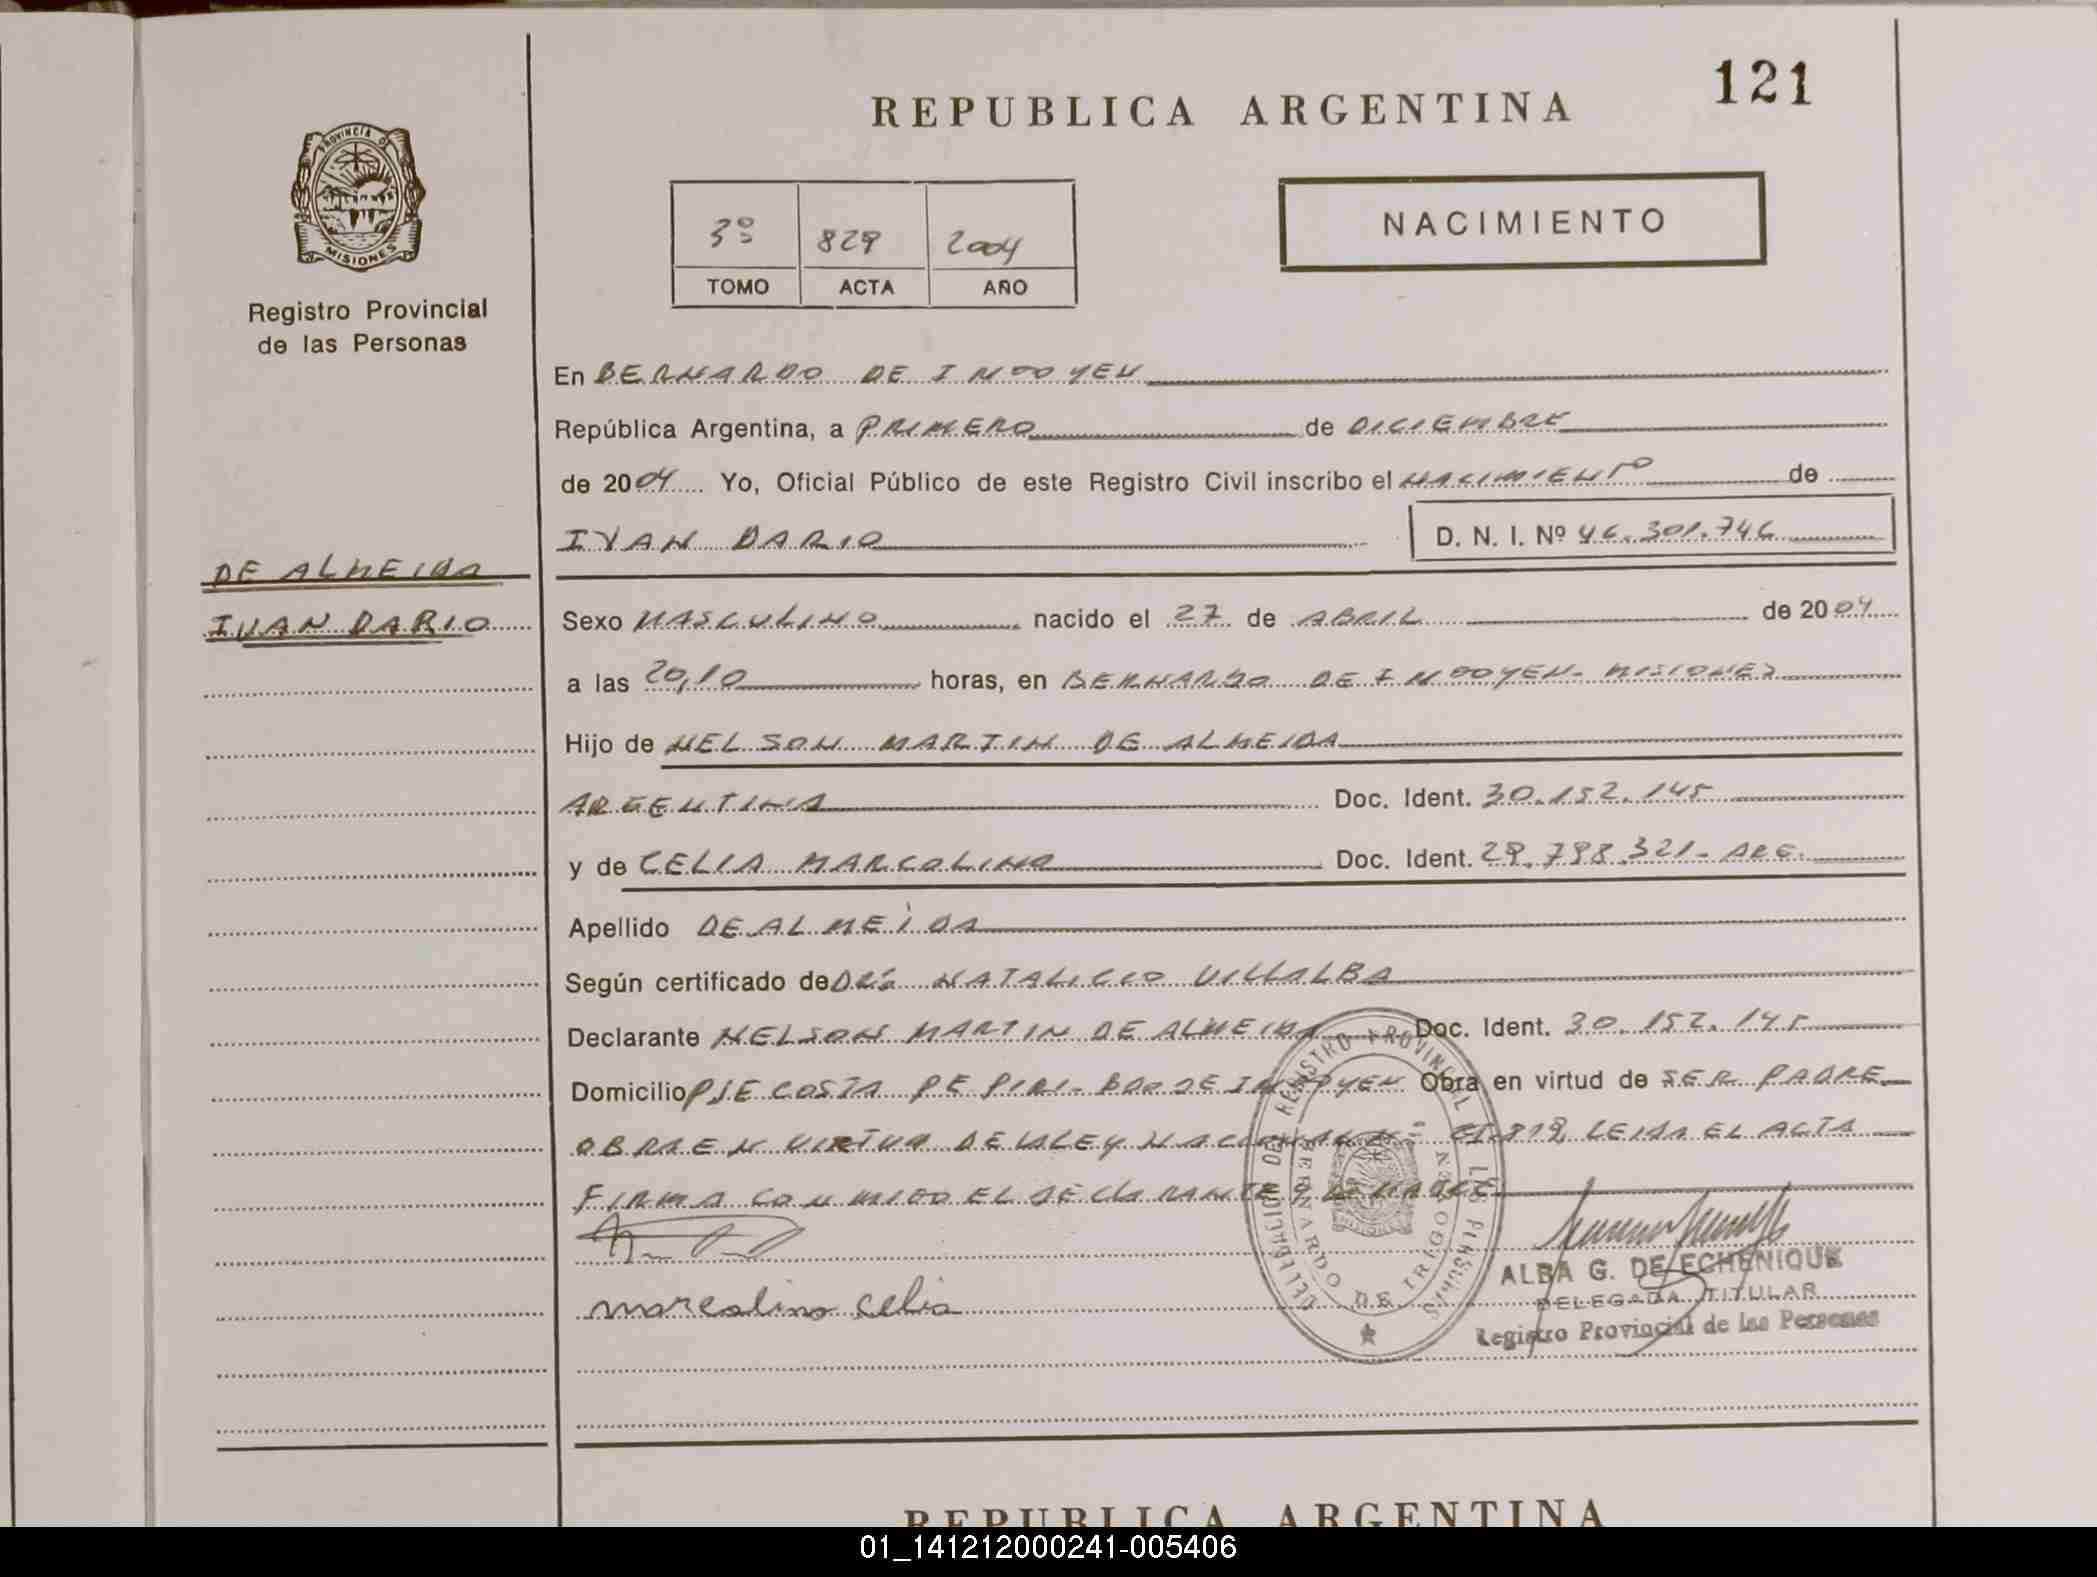 REPUBLICA ARGENTINA
121
PROVINCIA DE
MISIONES
Registro Provincial
de las Personas
3º 829 2004
TOMO ACTA AÑO
NACIMIENTO
En BERNARDO DE IRIGOYEN
República Argentina, a PRIMERO de DICIEMBRE
de 2004 Yo, Oficial Público de este Registro Civil inscribo el NACIMIENTO de
IVAN DARIO D. N. I. Nº 46.301.746
DE ALMEIDA
IVAN DARIO
Sexo MASCULINO nacido el 27 de ABRIL de 2004
a las 20,10 horas, en BERNARDO DE IRIGOYEN- MISIONES
Hijo de NELSON MARTIN DE ALMEIDA
ARGENTINA Doc. Ident. 30.152.145
y de CELIA MARCOLINO Doc. Ident. 29.798.321- ARG.
Apellido DE ALMEIDA
Según certificado de NATALICIO VILLALBA
Declarante NELSON MARTIN DE ALMEIDA Doc. Ident. 30.152.145
Domicilio PJE COSTA PEPIRI- BDO DE IRIGOYEN Obra en virtud de SER PADRE
OBRA EN VIRTUD DE LA LEY NACIONAL Nº LEIDA EL ACTA
FIRMA CONMIGO EL DECLARANTE Y LA MADRE
marcolino celia
DELEGACION DEL REGISTRO PROVINCIAL DE LAS PERSONAS
BERNARDO DE IRIGOYEN
ALBA G. DE ECHENIQUE
DELEGADA TITULAR
Registro Provincial de las Personas
REPUBLICA ARGENTINA
01_141212000241-005406